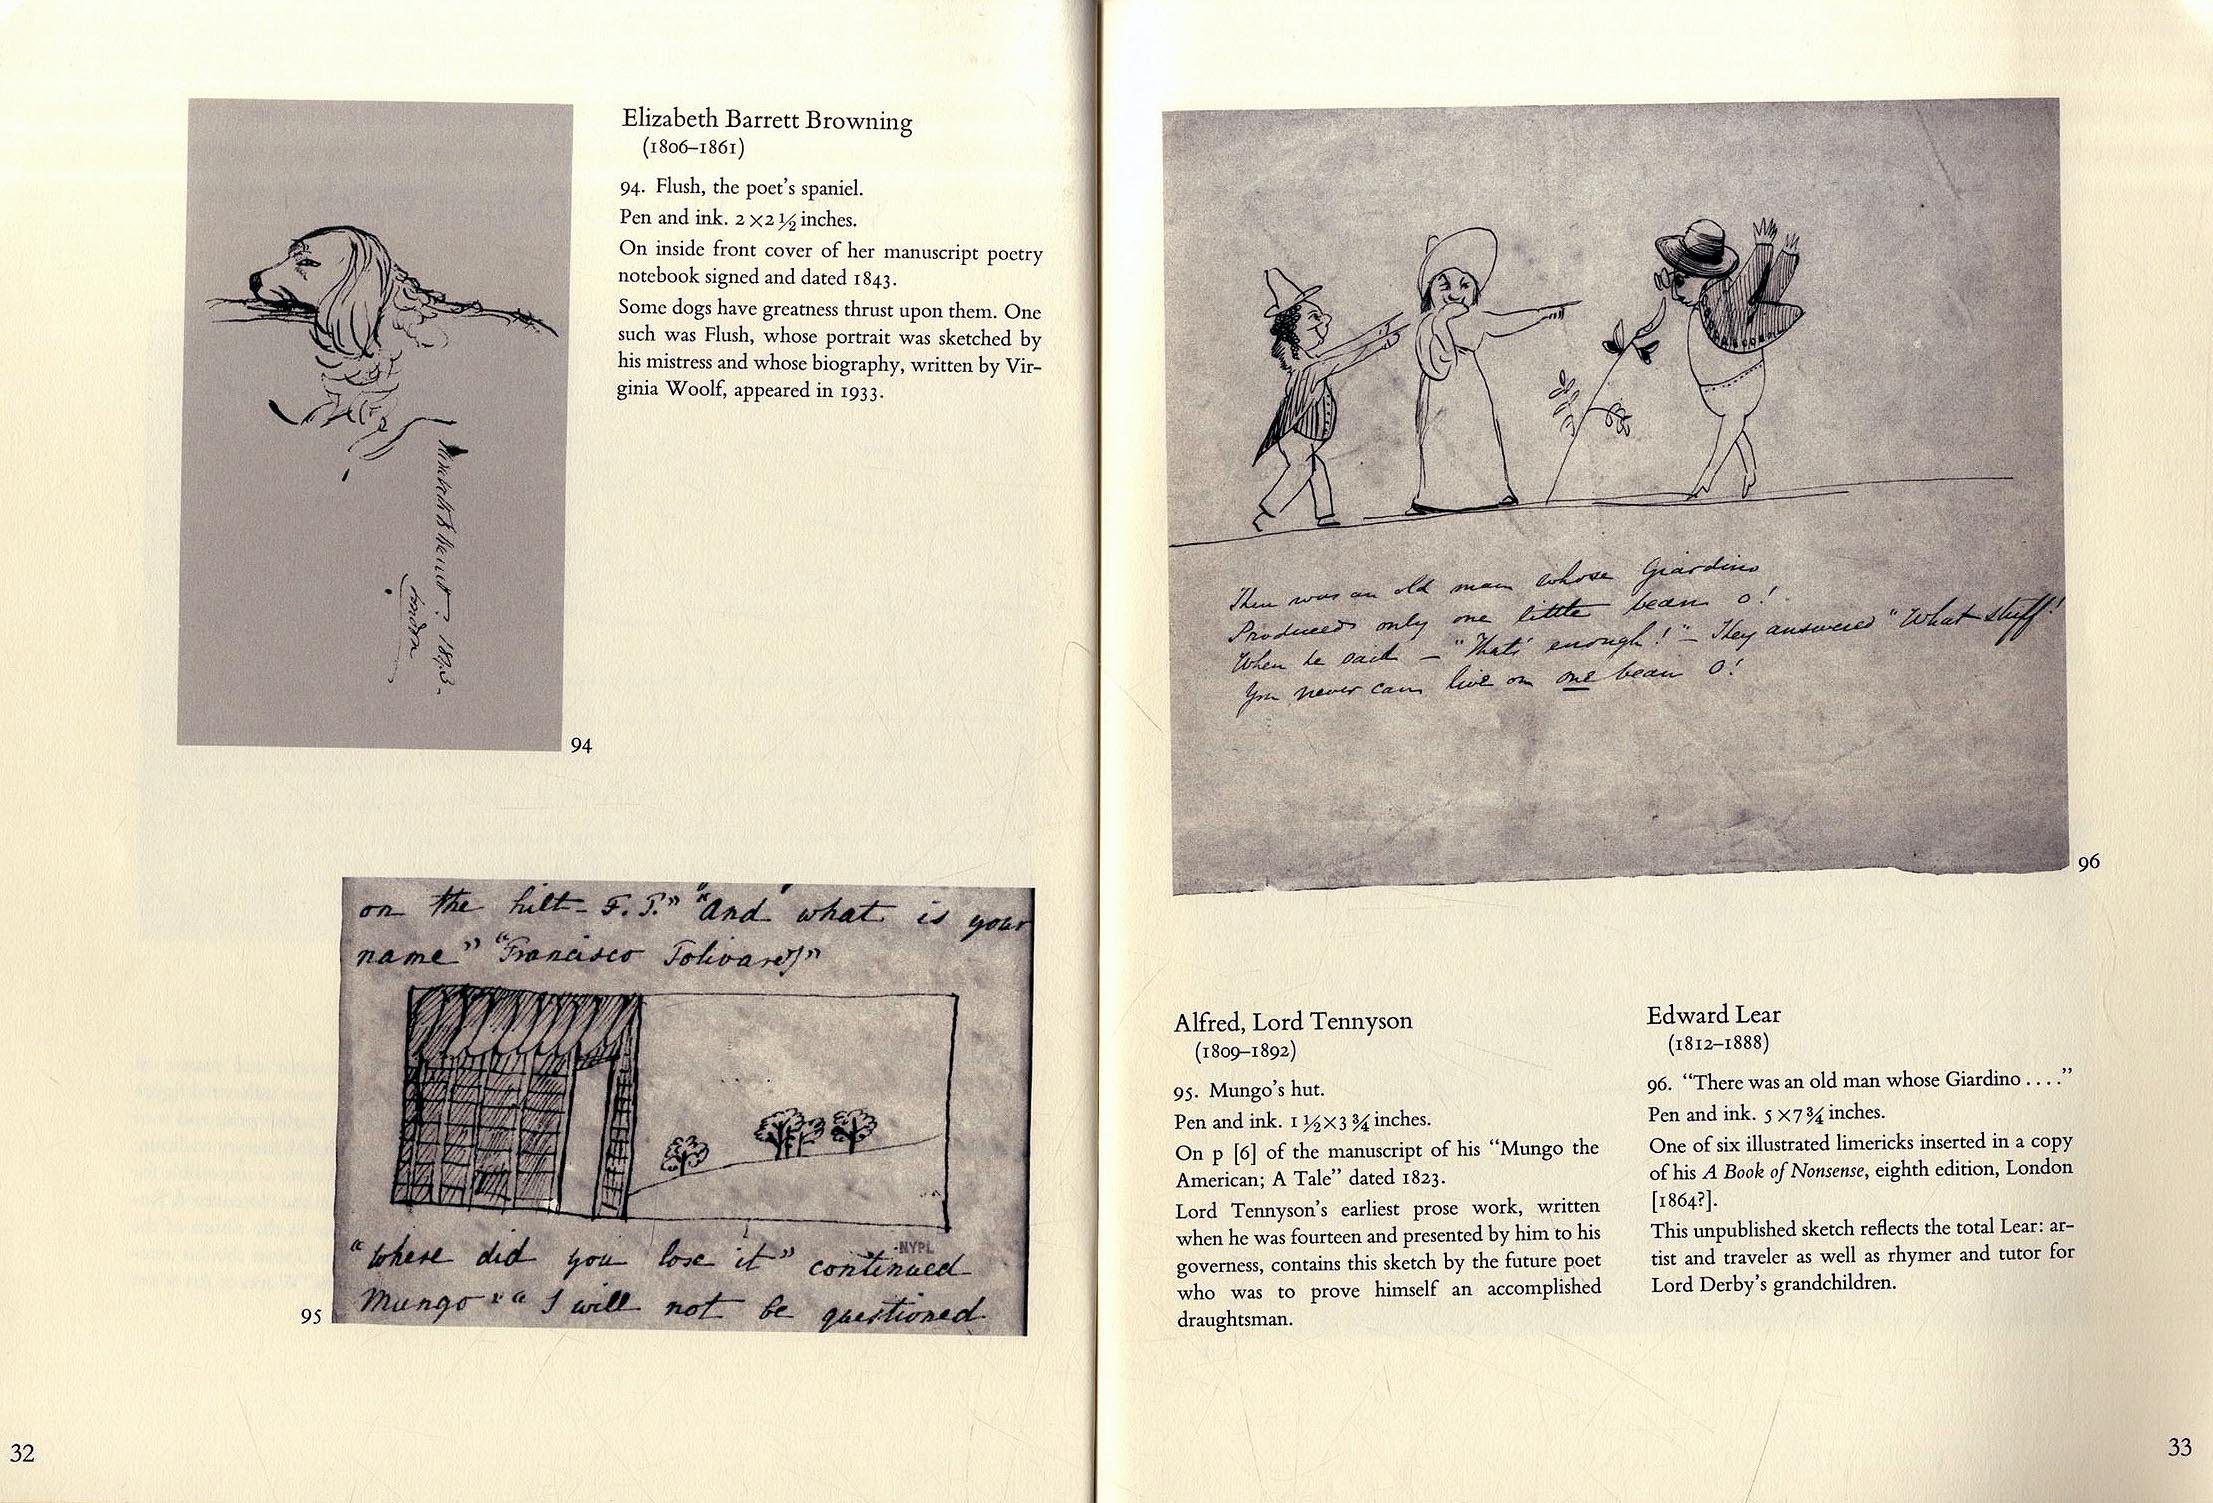 Elizabeth Barrett Browning
(1806–1861)
94. Flush, the poet's spaniel.
Pen and ink. 2 × 2 ½ inches.
On inside front cover of her manuscript poetry
notebook signed and dated 1843.
Some dogs have greatness thrust upon them. One
such was Flush, whose portrait was sketched by
his mistress and whose biography, written by Vir-
ginia Woolf, appeared in 1933.
Elizabeth B Barrett 1843.
London
94
on the hilt – F. T." "And what is your
name" "Francisco Tolivarez"
"where did you lose it" continued
Mungo" "I will not be questioned
NYPL
95
32
There was an old man whose Giardino
Produced only one little bean o!
When he said – "That's enough!" – They answered "What stuff!
You never can live on one bean O!
96
Alfred, Lord Tennyson
(1809–1892)
95. Mungo's hut.
Pen and ink. 1 ½ × 3 ¾ inches.
On p [6] of the manuscript of his "Mungo the
American; A Tale" dated 1823.
Lord Tennyson's earliest prose work, written
when he was fourteen and presented by him to his
governess, contains this sketch by the future poet
who was to prove himself an accomplished
draughtsman.
Edward Lear
(1812–1888)
96. "There was an old man whose Giardino . . . ."
Pen and ink. 5 × 7 ¾ inches.
One of six illustrated limericks inserted in a copy
of his A Book of Nonsense, eighth edition, London
[1864?].
This unpublished sketch reflects the total Lear: ar-
tist and traveler as well as rhymer and tutor for
Lord Derby's grandchildren.
33